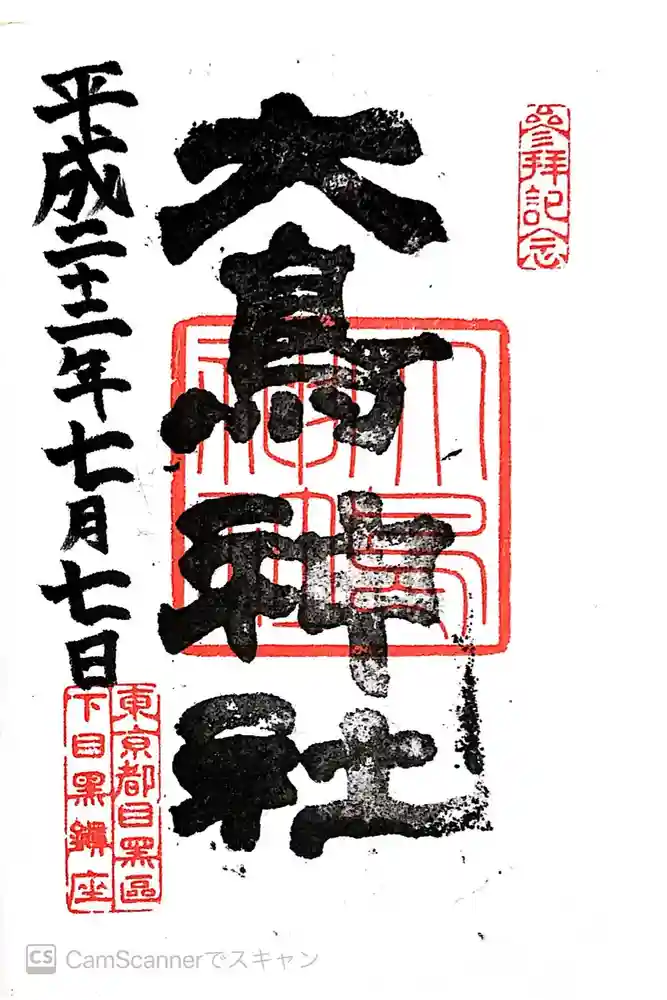 參拜記念
大鳥神社
大鳥神社
平成二十二年七月七日
東京都目黑區
下目黑鎮座
CS CamScannerでスキャン